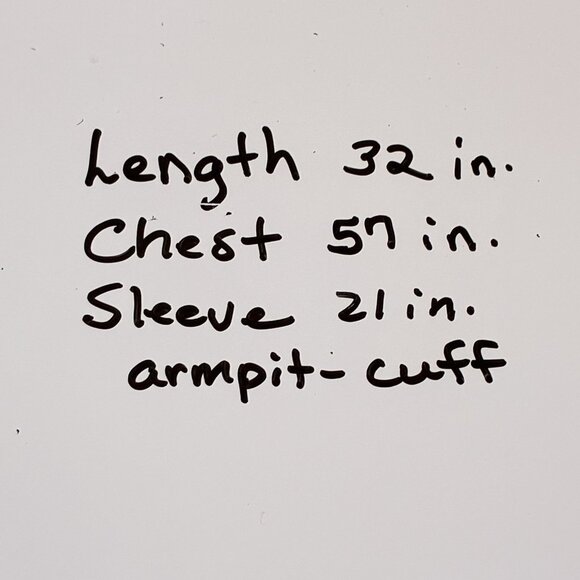 Length 32 in.
Chest 57 in.
Sleeve 21 in.
armpit- cuff